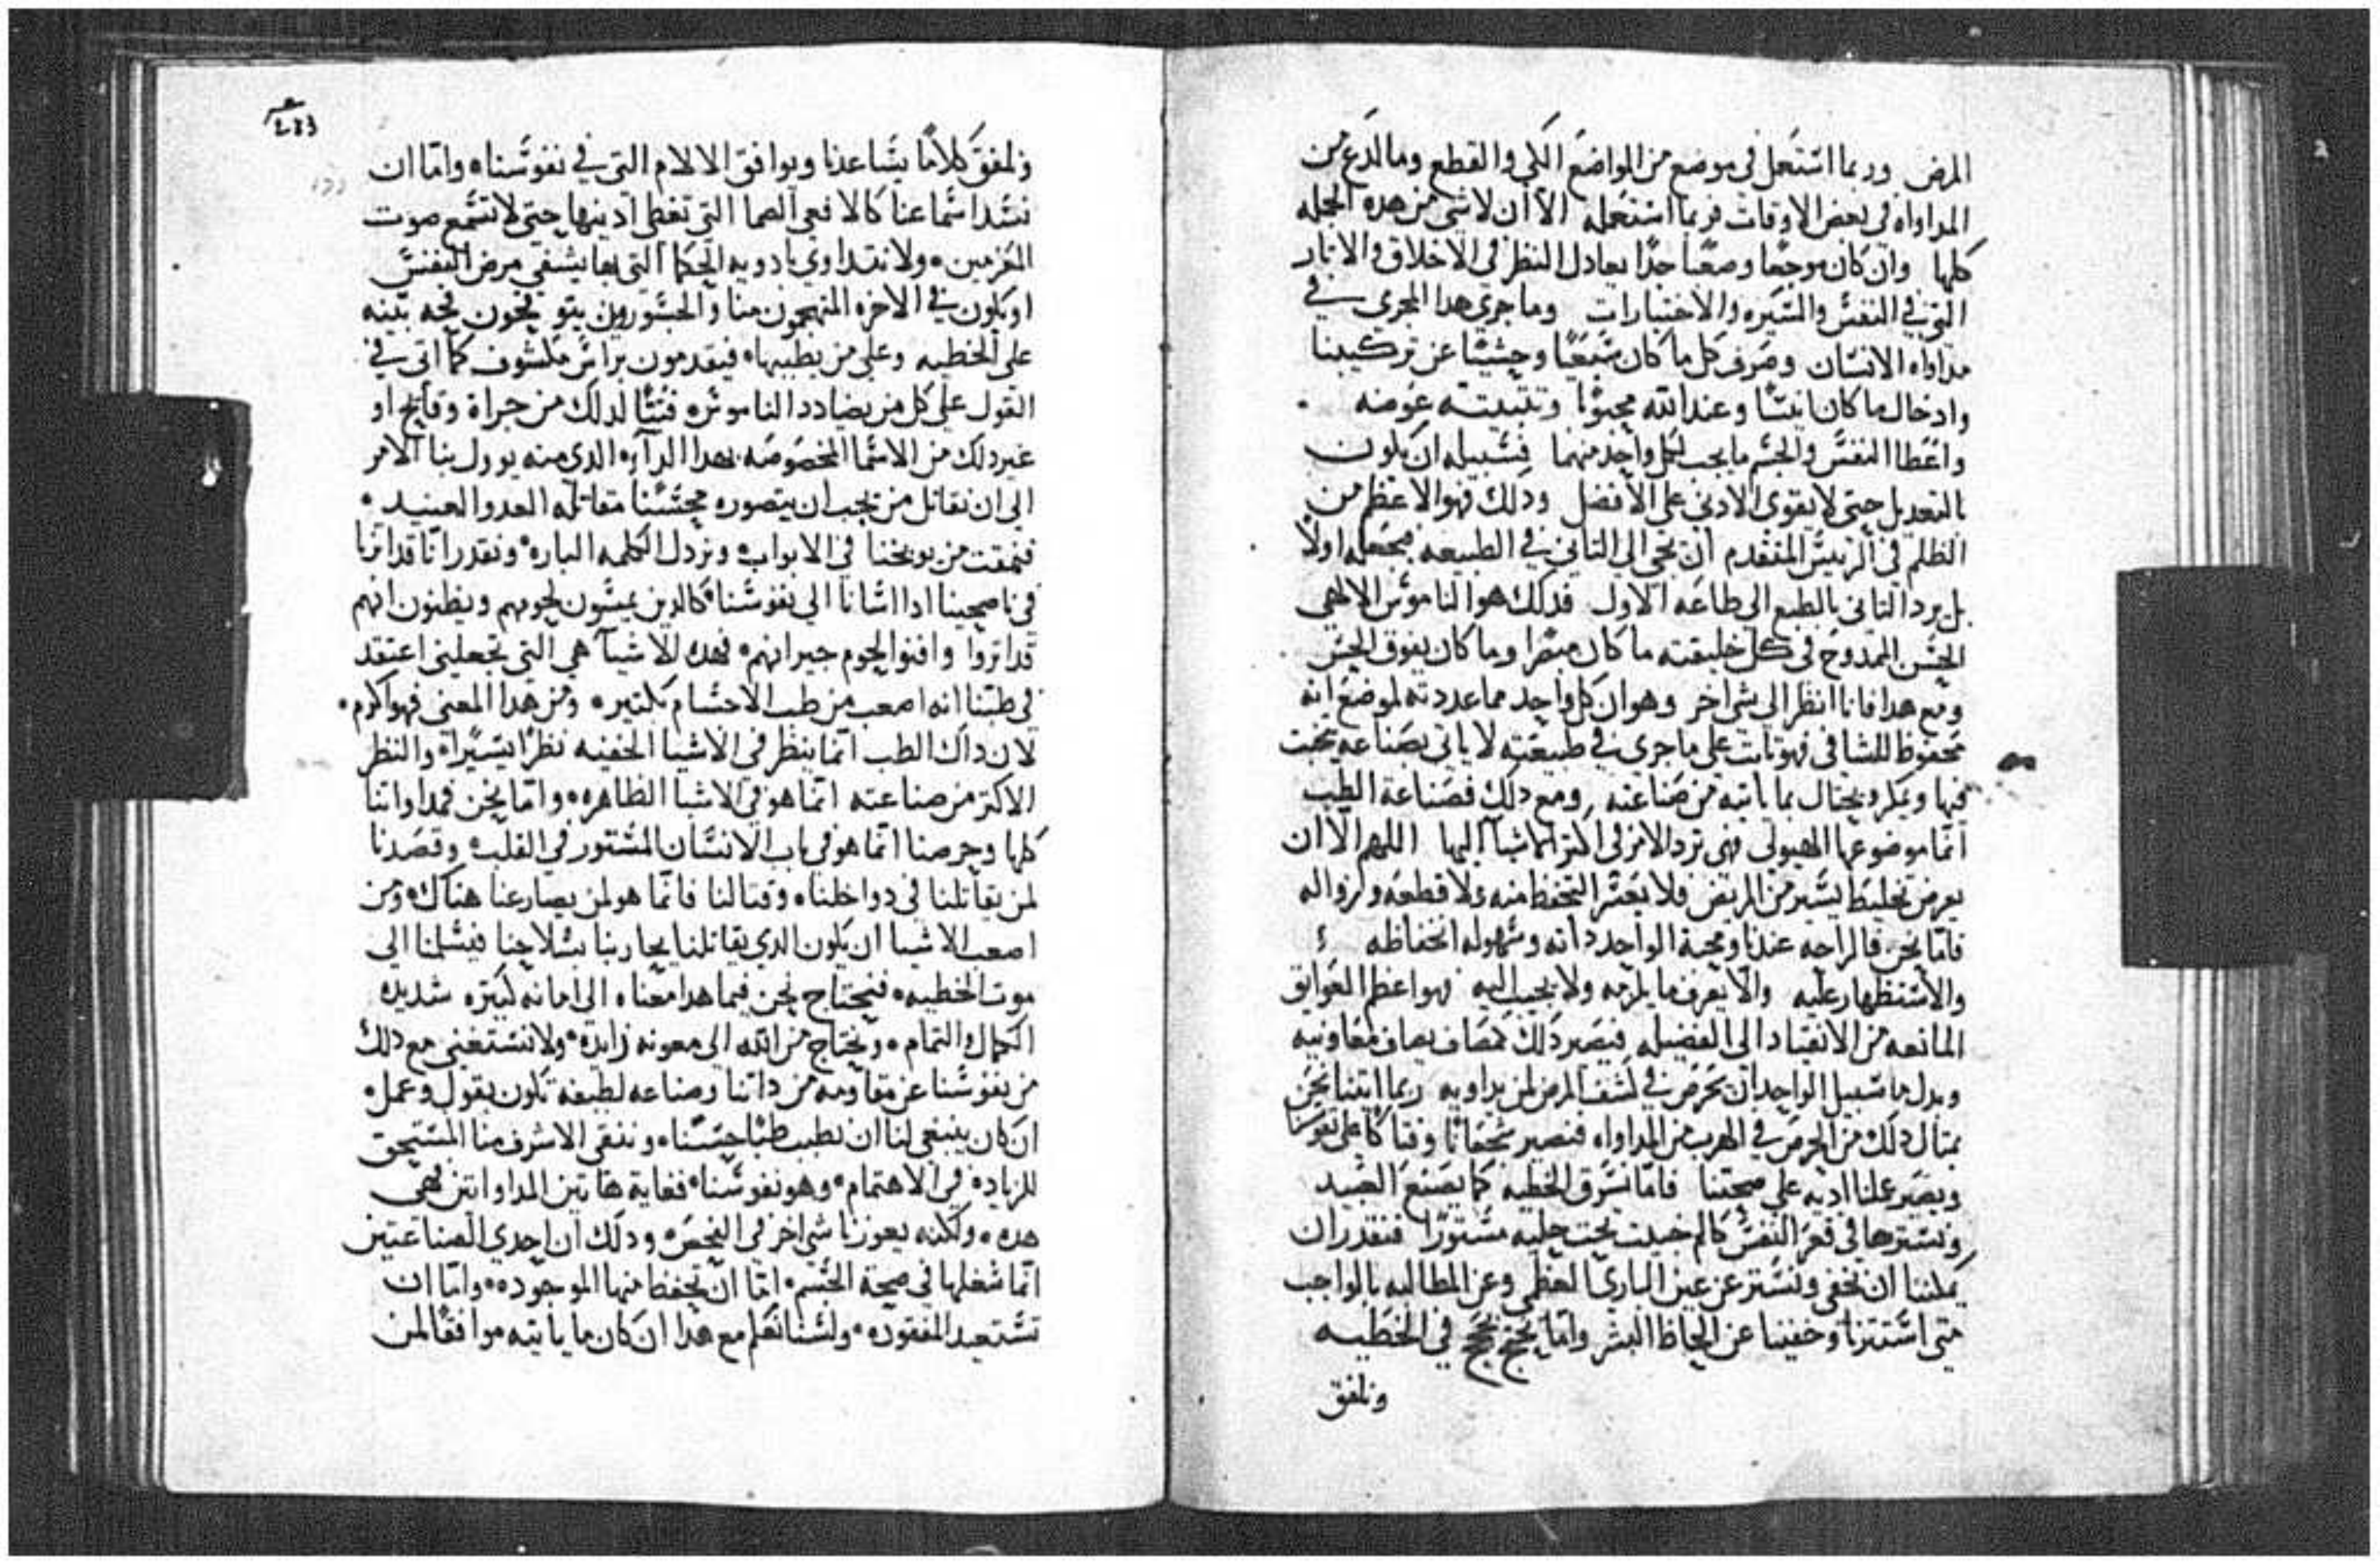 المرض وربما استعمل في موضع من المواضع الكي والقطع وما لدع من
المداواه في بعض الاوقات فربما استعمله الا ان لا شي من هده الجمله
كلها وان كان موجعا وصعبا جدا يعادل النظر في الاخلاق والاثار
التي في النفس والسيره والاختبارات وما جري هدا المجري في
مداواه الانسان وصرف كل ما كان سبعيا وحشيا عن تركيبنا
وادخال ما كان انسا وعند الله محبوبا وتثبيته عوضه
واعطا النفس والجسم ما يجب لكل واحد منهما فسبيله ان يكون
بالتعديل حتي لا يقوي الادني علي الافضل ودلك فهو الاعظم من
الظلم في الرييس المتقدم ان يجي الي الثاني في الطبيعه فيجعله اولا
بل يرد الثاني بالطبع الي طاعه الاول فدلك هو الناموس الالاهي
الحسن الممدوح في كل خليقته ما كان مبصرا وما كان يفوق الحس
ومع هدا فانا انظر الي شي اخر وهو ان كل واحد مما عددته لموضع انه
محفوظ للشافي فهو ثابت علي ما جري في طبيعته لا ياتي بصناعه يخبث
فيها ويمكر ويحتال بما ياتيه من صناعته ومع دلك فصناعة الطب
انما موضوعها الهيولي فهي ترد الامر في اكثر الاشيا اليها اللهم الا ان
يعرض تخليط يسير من المريض فلا يعسر التحفظ منه ولا قطعه ولا زواله
فاما نحن فالراحه عندنا ومحبة الواحد داته وسهوله انخفاظه
والاستظهار عليه والا يعرف ما يلزمه ولا يجيب اليه فهو اعظم العوايق
المانعه من الانقياد الي الفضيله فيصير دلك كمصاف يصاف معاونيه
وبدل ما سبيل الواحد ان يحرص في كشف المرض لمن يداويه ربما اتينا نحن
بمثال دلك من الحرص في الهرب من المداواه فنصير شجعانا وفتاكا علي نفوسنا
ويصير علمنا اديه علي صحتنا فاما نسرق الخطيه كما يصنع العبيد
ونسترها في قعر النفس كالم خبيث تحت حليه مستورا فنقدر ان
يمكننا ان نخفي ونستتر عن عين الباري العظمي وعن المطالبه بالواجب
متي استترنا وخفينا عن الحاظ البشر واما نحتج بحجج في الخطيه
ونلفق
ونلفق كلاما يساعدنا ويوافق الالام التي في نفوسنا واما ان
نسد اسماعنا كالافعي الصما التي تغطي ادينها حتي لا تسمع صوت
المعزمين ولا نتداوي بادويه الحكما التي بها يشفي مرض النفس
او يكون في الاخره المتهجمون منا والجسورين يتوقحون قحه بينه
علي الخطيه وعلي من يطببها فيقدمون براس مكشوف كما اتي في
القول علي كل من يضادد الناموس فتبا لدلك من جراة وقايح او
غير دلك من الاسما المخصوصه بهدا الداء الدي منه يوول بنا الامر
الي ان نقاتل من يجب ان يتصوره محسنا مقاتله العدو العنيد
فنمقت من يوبخنا في الابواب ونردل الكلمه الباره ونقدر انا قد اثرنا
في ناصحينا ادا اسانا الي نفوسنا كالدين يمسون لحومهم ويظنون انهم
قد اثروا وافنوا لحوم جيرانهم فهده الاشيا هي التي تجعلني اعتقد
في طبنا انه اصعب من طب الاجسام بكثير ومن هدا المعني فهو اكرم
لان داك الطب انما ينظر في الاشيا الخفيه نظرا يسيرا والنظر
الاكثر من صناعته انما هو في الاشيا الظاهره واما نحن فمداواتنا
كلها وحرصنا انما هو في باب الانسان المستور في القلب وقصدنا
لمن يقاتلنا في دواخلنا وقتالنا فانما هو لمن يصارعنا هناك ومن
اصعب الاشيا ان يكون الدي يقاتلنا يحاربنا بسلاحنا فيسلمنا الي
موت الخطيه فنحتاج نحن فيما هدا معناه الي امانه كبيره شديده
الكمال والتمام ونحتاج من الله الي معونه زايده ولا نستغني مع دلك
من نفوسنا عن مقاومه من داتنا وصناعه لطيفه تكون بقول وعمل
ان كان ينبغي لنا ان نطبب طبا حسنا وننقي الاشرف منا المستحق
للزياده في الاهتمام وهو نفوسنا فغاية هاتين المداواتين فهي
هده ولكنه يعوزنا شي اخر في الفحص ودلك ان احدي الصناعتين
انما شغلها في صحة الجسم اما ان تحفظ منها الموجوده واما ان
تستعيد المفقوده ولسنا نعلم مع هدا ان كان ما ياتيه موافقا لمن